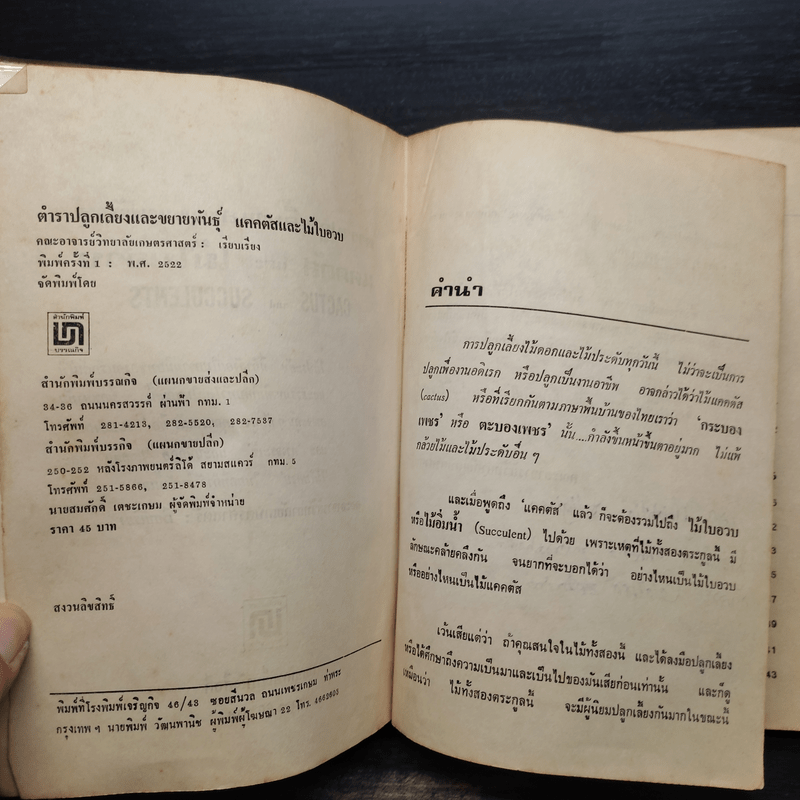 ตำราปลูกเลี้ยงและขยายพันธุ์ แคคตัสและไม้ใบอวบ
คณะอาจารย์วิทยาลัยเกษตรศาสตร์ : เรียบเรียง
พิมพ์ครั้งที่ 1 : พ.ศ. 2522
จัดพิมพ์โดย
สำนักพิมพ์
บรรณกิจ
สำนักพิมพ์บรรณกิจ (แผนกขายส่งและปลีก)
34-36 ถนนนครสวรรค์ ผ่านฟ้า กทม. 1
โทรศัพท์ 281-4213, 282-5520, 282-7537
สำนักพิมพ์บรรกิจ (แผนกขายปลีก)
250-252 หลังโรงภาพยนตร์ลิโด้ สยามสแควร์ กทม. 5
โทรศัพท์ 251-5866, 251-8478
นายสมศักดิ์ เตชะเกษม ผู้จัดพิมพ์จำหน่าย
ราคา 45 บาท
สงวนลิขสิทธิ์
พิมพ์ที่โรงพิมพ์เจริญกิจ 46/43 ซอยสีนวล ถนนเพชรเกษม ท่าพระ
กรุงเทพ ฯ นายพิมพ์ วัฒนพานิช ผู้พิมพ์ผู้โฆษณา 22 โทร. 4662605
คำนำ
การปลูกเลี้ยงไม้ดอกและไม้ประดับทุกวันนี้ ไม่ว่าจะเป็นการ
ปลูกเพื่องานอดิเรก หรือปลูกเป็นงานอาชีพ อาจกล่าวได้ว่าไม้แคคตัส
(cactus) หรือที่เรียกกันตามภาษาพื้นบ้านของไทยเราว่า 'กระบอง
เพชร' หรือ ตะบองเพชร' นั้น....กำลังขึ้นหน้าขึ้นตาอยู่มาก ไม่แพ้
กล้วยไม้และไม้ประดับอื่น ๆ
และเมื่อพูดถึง 'แคคตัส' แล้ว ก็จะต้องรวมไปถึง ไม้ใบอวบ
หรือไม้อิ่มน้ำ (Succulent) ไปด้วย เพราะเหตุที่ไม้ทั้งสองตระกูลนี้ มี
ลักษณะคล้ายคลึงกัน จนยากที่จะบอกได้ว่า อย่างไหนเป็นไม้ใบอวบ
หรืออย่างไหนเป็นไม้แคคตัส
เว้นเสียแต่ว่า ถ้าคุณสนใจในไม้ทั้งสองนี้ และได้ลงมือปลูกเลี้ยง
หรือได้ศึกษาถึงความเป็นมาและเป็นไปของมันเสียก่อนเท่านั้น และก็ดู
เหมือนว่า ไม้ทั้งสองตระกูลนี้ จะมีผู้นิยมปลูกเลี้ยงกันมากในขณะนี้